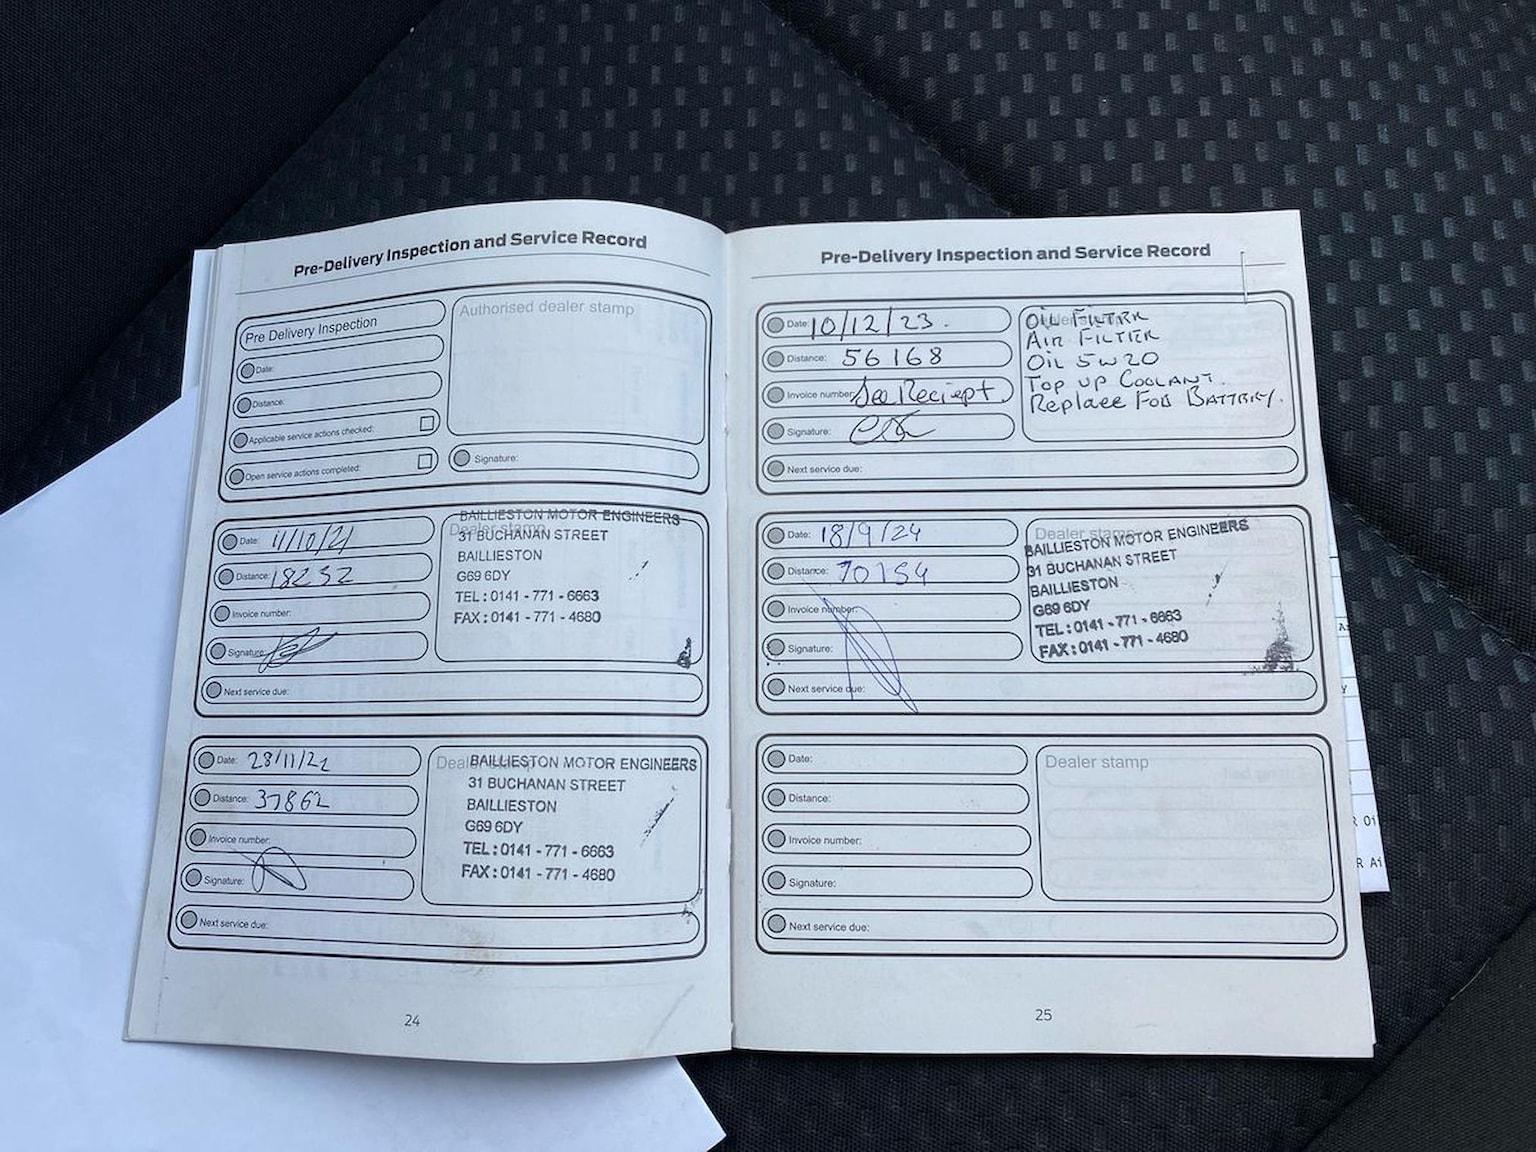 Pre-Delivery Inspection and Service Record
Pre Delivery Inspection
Authorised dealer stamp
Date:
Distance:
Applicable service actions checked:
Open service actions completed:
Signature:
Date: 11/10/21
Distance: 18232
Invoice number:
Signature:
Next service due:
Dealer stamp
BAILLIESTON MOTOR ENGINEERS
31 BUCHANAN STREET
BAILLIESTON
G69 6DY
TEL : 0141 - 771 - 6663
FAX : 0141 - 771 - 4680
Date: 28/11/22
Distance: 37862
Invoice number:
Signature:
Next service due:
Dealer stamp
BAILLIESTON MOTOR ENGINEERS
31 BUCHANAN STREET
BAILLIESTON
G69 6DY
TEL : 0141 - 771 - 6663
FAX : 0141 - 771 - 4680
24
Pre-Delivery Inspection and Service Record
Date: 10/12/23.
Distance: 56168
Invoice number: See Reciept.
Signature:
Next service due:
OIL FILTRR
AIR FILTER
OIL 5W20
TOP UP COOLANT.
Replace FOB BATTREY.
Date: 18/9/24
Distance: 70154
Invoice number:
Signature:
Next service due:
Dealer stamp
BAILLIESTON MOTOR ENGINEERS
31 BUCHANAN STREET
BAILLIESTON
G69 6DY
TEL : 0141 - 771 - 6663
FAX : 0141 - 771 - 4680
Date:
Distance:
Invoice number:
Signature:
Next service due:
Dealer stamp
25